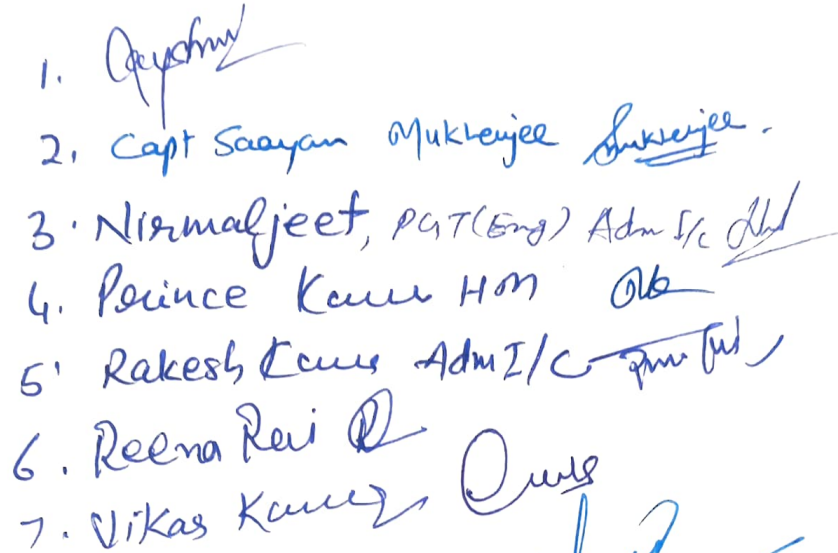 1.
2. Capt Saayan Mukherjee Smukherjee.
3. Nirmaljeet, PGT(Eng) Adm I/c
4. Prince Kumar HM
5. Rakesh Kumar Adm I/C
6. Reena Rai
7. Vikas Kumar